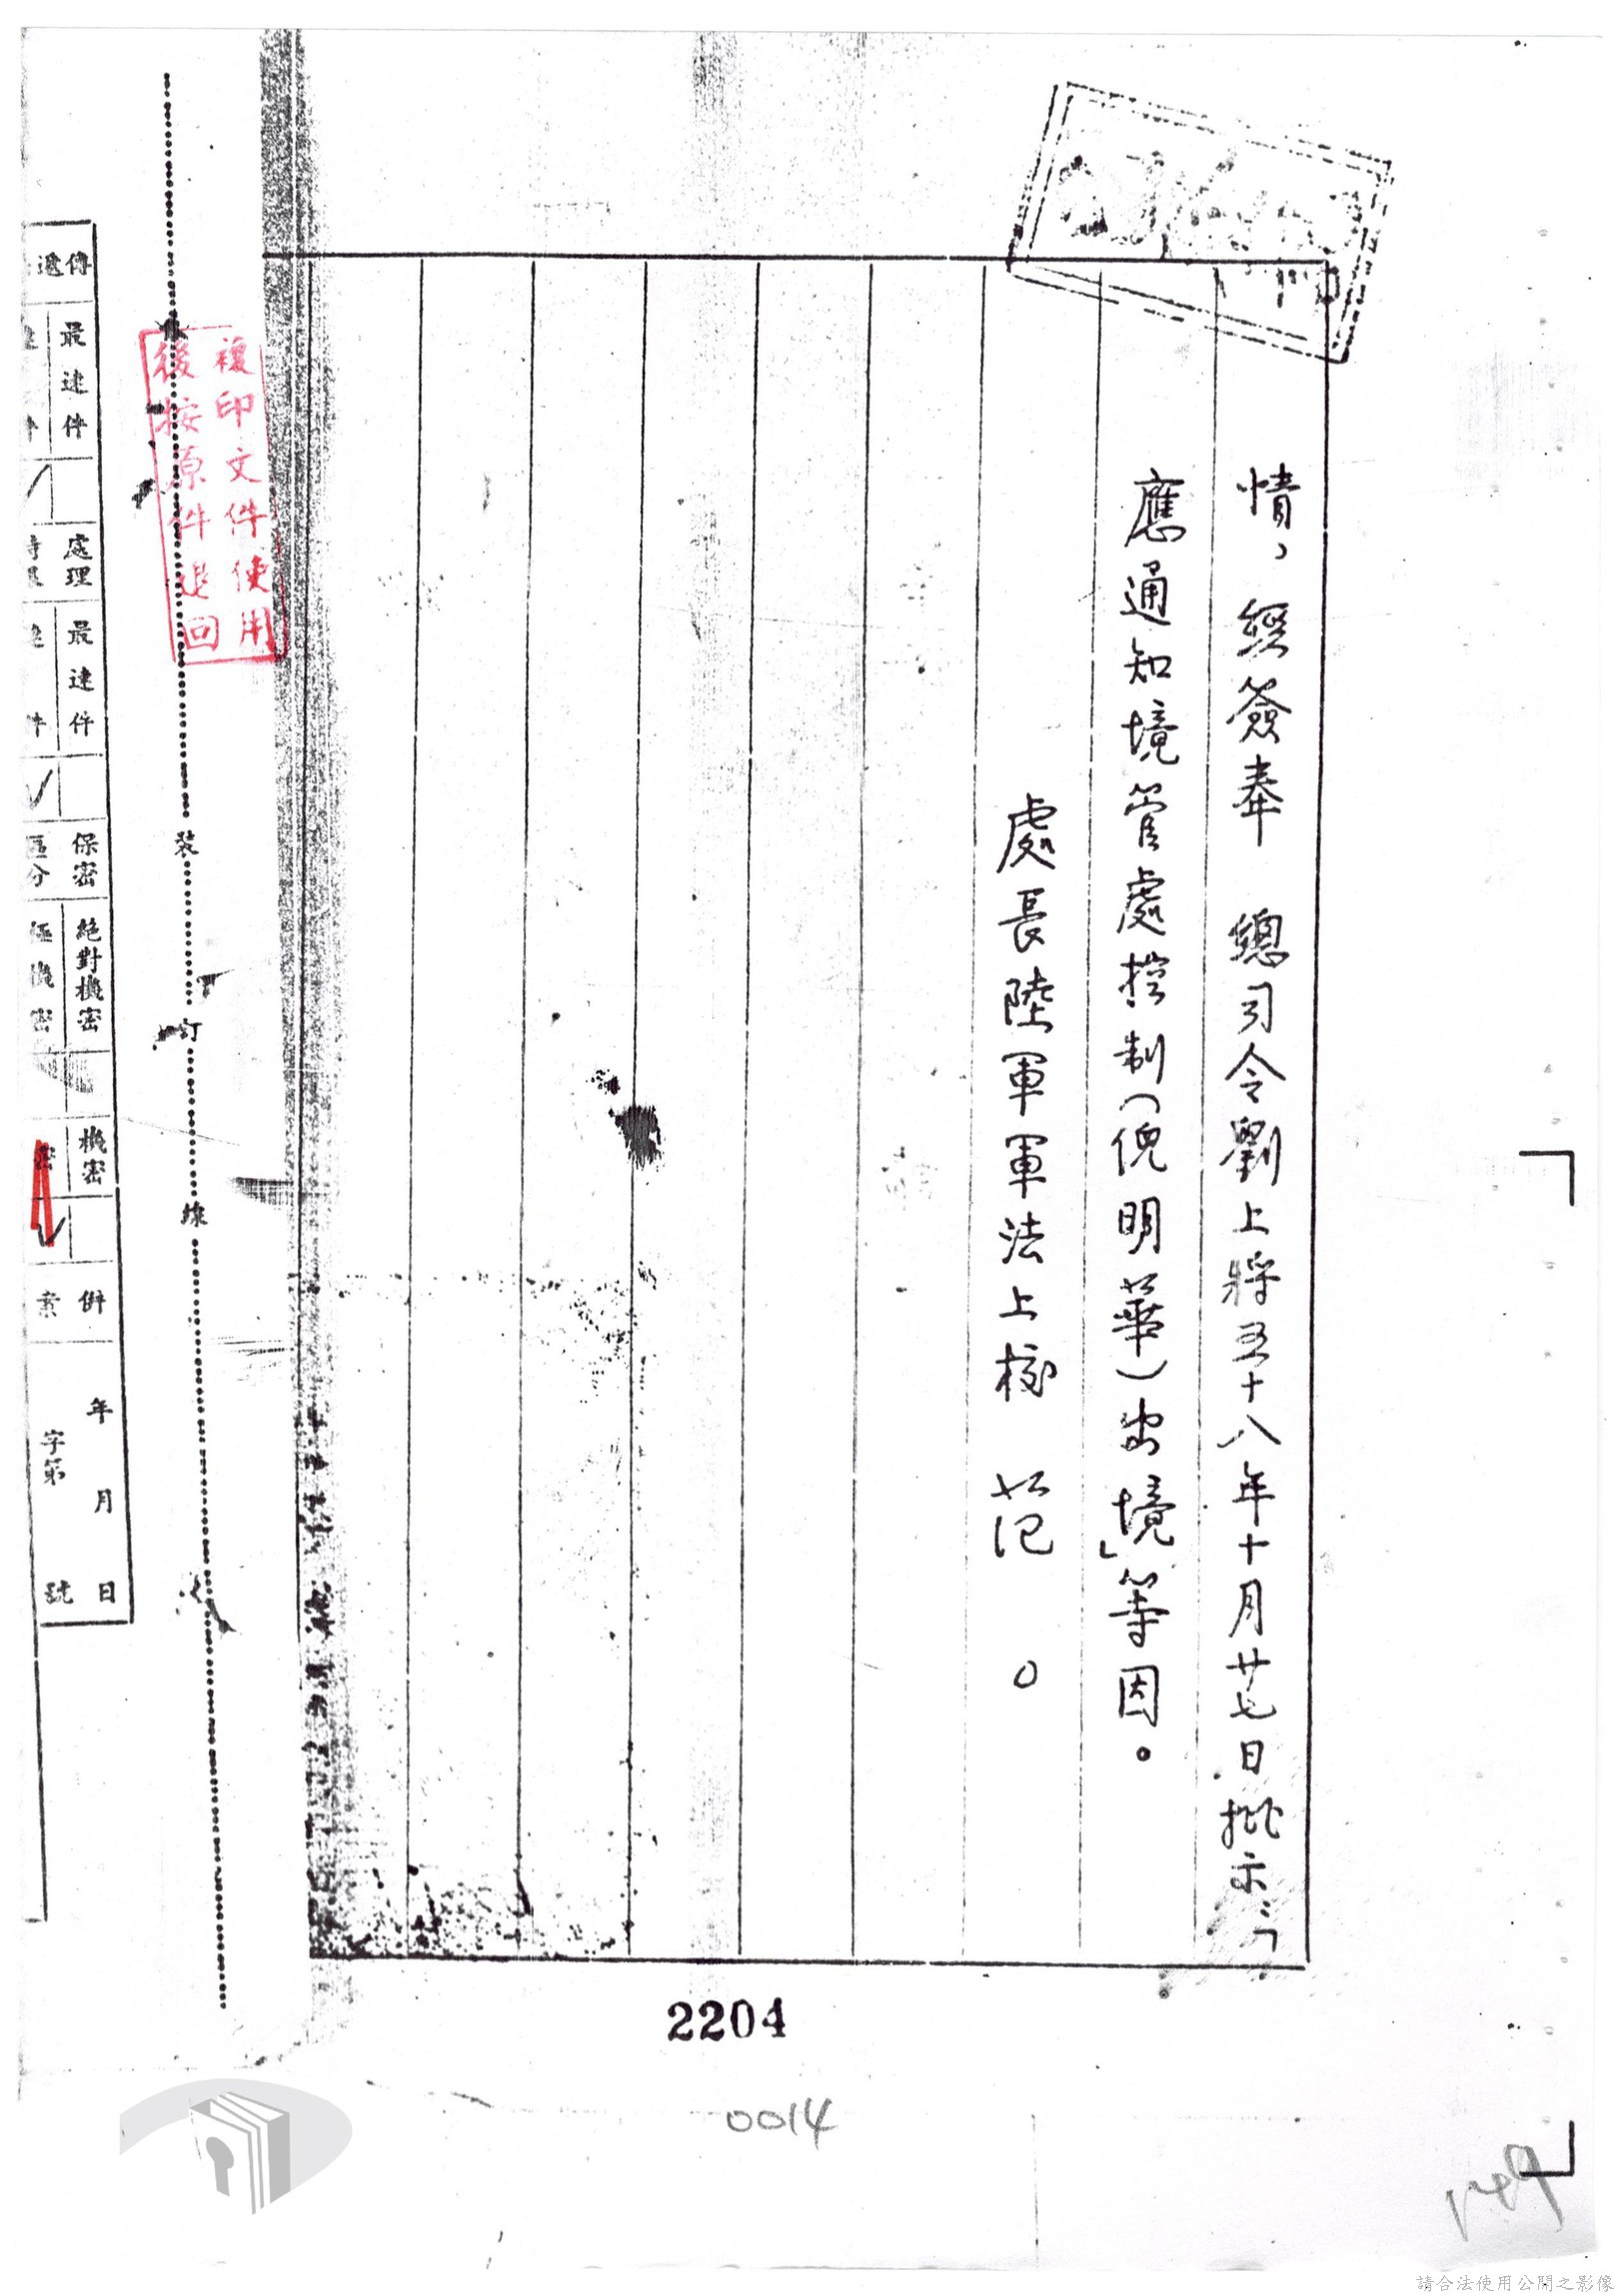 情，經簽奉　總司令劉上將五十八年十月廿七日批示：「
應通知境管處控制（倪明華）出境」等因。
處長陸軍軍法上校　范　○
複印文件使用
後按原件退回
裝訂線
傳遞
最速件
處理
最速件
保密區分
絕對機密
極機密
機密
密
併案
年月日
字第號
2204
0014
149
請合法使用公開之影像